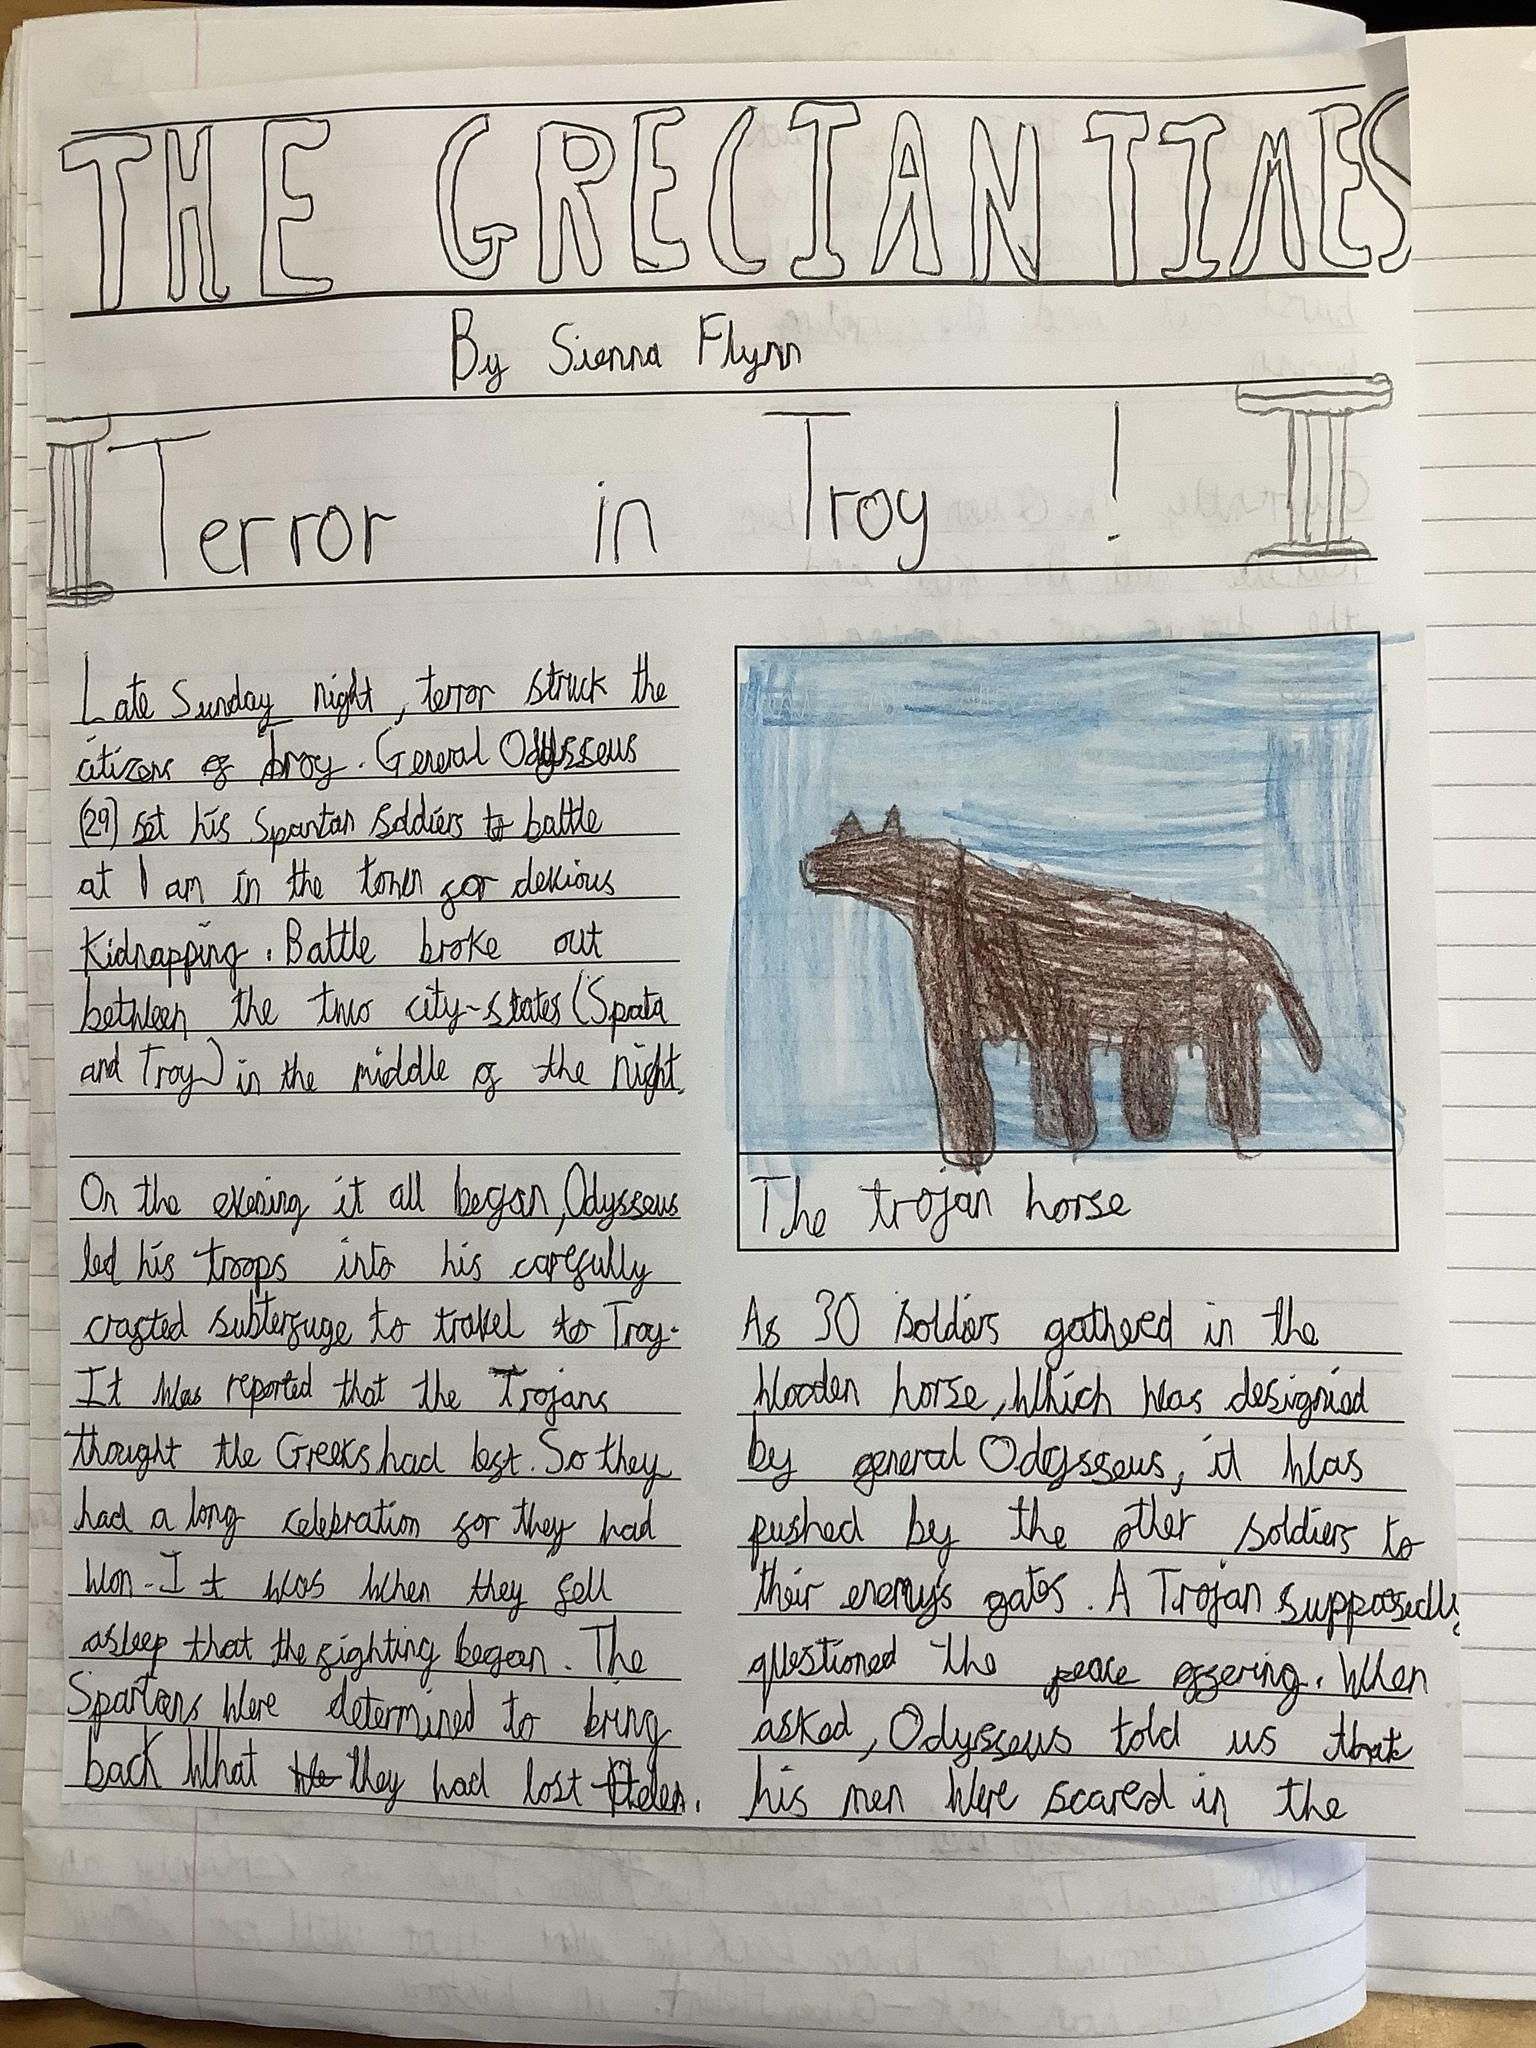 THE GRECIAN TIMES
By Sienna Flynn
Terror in Troy !
Late Sunday night, terror struck the
citizens of troy. General Odysseus
(29) set his Spartan soldiers to battle
at 1 am in the town for devious
Kidnapping. Battle broke out
between the two city-states (Spata
and Troy) in the middle of the night.
On the evening it all began, Odysseus
led his troops into his carefully
crafted subterfuge to travel to Troy.
It was reported that the Trojans
thought the Greeks had lost. So they
had a long celebration for they had
won. It was when they fell
asleep that the fighting began. The
Spartans were determined to bring
back what they had lost
The trojan horse
As 30 soldiers gathered in the
wooden horse, which was designied
by general Odysseus, it was
pushed by the other soldiers to
their enemys gates. A Trojan supposedly
questioned the peace offering. When
asked, Odysseus told us that
his men were scared in the